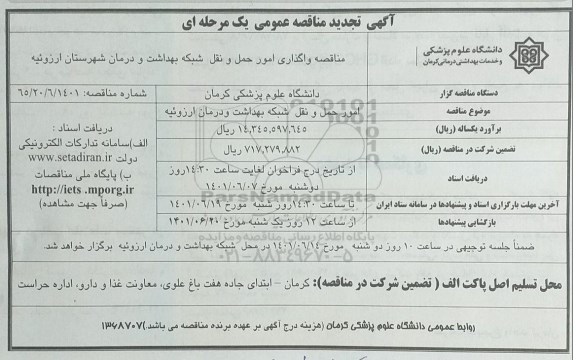 آگهی تجدید مناقصه عمومی یک مرحله ای
دانشگاه علوم پزشکی
و خدمات بهداشتی درمانی کرمان
مناقصه واگذاری امور حمل و نقل شبکه بهداشت و درمان شهرستان ارزوئیه
دستگاه مناقصه گزار
دانشگاه علوم پزشکی کرمان
شماره مناقصه: ۶۵/۲۰/۶/۱۴۰۱
موضوع مناقصه
امور حمل و نقل شبکه بهداشت ودرمان ارزوئیه
برآورد یکساله (ریال)
۱۴,۳۴۵,۵۹۷,۶۴۵ ریال
تضمین شرکت در مناقصه (ریال)
۷۱۷,۲۷۹,۸۸۲ ریال
دریافت اسناد
از تاریخ درج فراخوان لغایت ساعت ۱۴:۳۰روز
دوشنبه مورخ ۱۴۰۱/۰۶/۰۷
آخرین مهلت بارگزاری اسناد و پیشنهادها در سامانه ستاد ایران
تا ساعت ۱۴:۳۰روز شنبه مورخ ۱۴۰۱/۰۶/۱۹
بازگشایی پیشنهادها
از ساعت ۱۲ روز یک شنبه مورخ ۱۴۰۱/۰۶/۲۰
دریافت اسناد :
الف)سامانه تدارکات الکترونیکی
دولت www.setadiran.ir
ب) پایگاه ملی مناقصات
http://iets .mporg.ir
(صرفاً جهت مشاهده)
ParsNamadData
پایگاه اطلاع رسانی مناقصه و مزایده
۰۲۱-۸۸۳۴۹۶۷۰-۵
ضمناً جلسه توجیهی در ساعت ۱۰ روز دو شنبه مورخ ۱۴۰۱/۰۶/۱۴ در محل شبکه بهداشت و درمان ارزوئیه برگزار خواهد شد.
محل تسلیم اصل پاکت الف ( تضمین شرکت در مناقصه): کرمان – ابتدای جاده هفت باغ علوی، معاونت غذا و دارو، اداره حراست
روابط عمومی دانشگاه علوم پزشکی کرمان (هزینه درج آگهی بر عهده برنده مناقصه می باشد.)۱۳۶۸۷۰۷